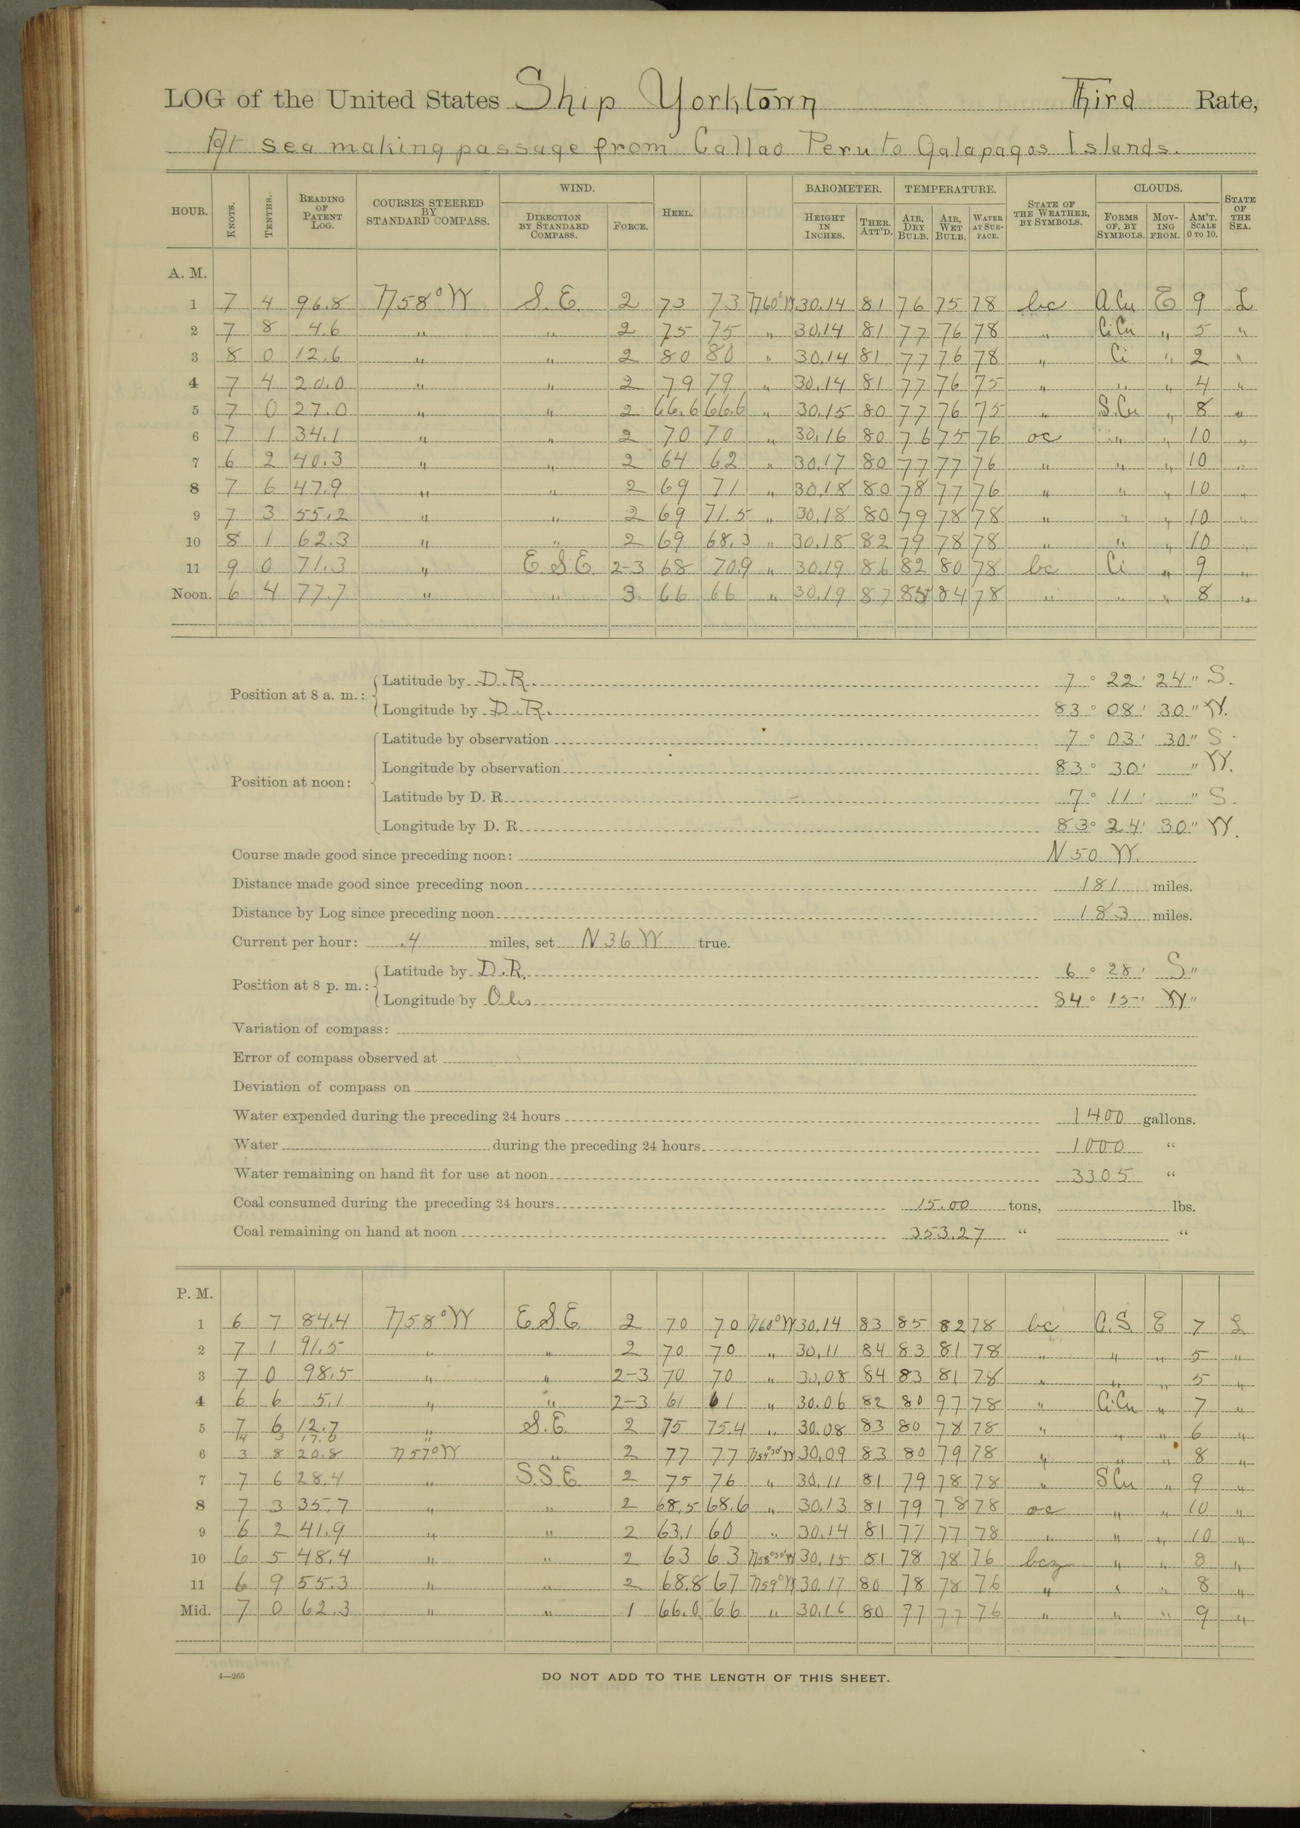 LOG of the United States Ship Yorktown Third Rate,
At sea making passage from Callao Peru to Galapagos Islands.
HOUR. KNOTS. TENTHS. READING OF PATENT LOG. COURSES STEERED BY STANDARD COMPASS. WIND. DIRECTION BY STANDARD COMPASS. FORCE. HEEL. BAROMETER. HEIGHT IN INCHES. THER. ATT'D. TEMPERATURE. AIR, DRY BULB. AIR, WET BULB. WATER AT SURFACE. STATE OF THE WEATHER, BY SYMBOLS. CLOUDS. FORMS OF, BY SYMBOLS. MOVING FROM. AM'T. SCALE 0 TO 10. STATE OF THE SEA.
A. M.
1 7 4 96.8 N58°W S.E. 2 73 73 N60°W 30.14 81 76 75 78 bc A Cu E 9 L
2 7 8 4.6 " " 2 75 75 " 30.14 81 77 76 78 " Ci Cu " 5 "
3 8 0 12.6 " " 2 80 80 " 30.14 81 77 76 78 " Ci " 2 "
4 7 4 20.0 " " 2 79 79 " 30.14 81 77 76 75 " " " 4 "
5 7 0 27.0 " " 2 66.6 66.6 " 30.15 80 77 76 75 " S.Cu " 8 "
6 7 1 34.1 " " 2 70 70 " 30.16 80 76 75 76 oc " " 10 "
7 6 2 40.3 " " 2 64 62 " 30.17 80 77 77 76 " " " 10 "
8 7 6 47.9 " " 2 69 71 " 30.18 80 78 77 76 " " " 10 "
9 7 3 55.2 " " 2 69 71.5 " 30.18 80 79 78 78 " " " 10 "
10 8 1 62.3 " " 2 69 68.3 " 30.18 82 79 78 78 " " " 10 "
11 9 0 71.3 " E.S.E. 2-3 68 70.9 " 30.19 86 82 80 78 bc Ci " 9 "
Noon. 6 4 77.7 " " 3 66 66 " 30.19 87 84 78 " " " 8 "
Position at 8 a. m.: Latitude by D.R. 7° 22' 24" S.
Longitude by D.R. 83° 08' 30" W.
Position at noon: Latitude by observation 7° 03' 30" S.
Longitude by observation 83° 30' " W.
Latitude by D. R. 7° 11' " S.
Longitude by D. R. 83° 24' 30" W.
Course made good since preceding noon: N 50 W.
Distance made good since preceding noon 181 miles.
Distance by Log since preceding noon 183 miles.
Current per hour: .4 miles, set N 36 W true.
Position at 8 p. m.: Latitude by D.R. 6° 28' S"
Longitude by Obs 84° 15' W"
Variation of compass:
Error of compass observed at
Deviation of compass on
Water expended during the preceding 24 hours 1400 gallons.
Water during the preceding 24 hours 1000 "
Water remaining on hand fit for use at noon 3305 "
Coal consumed during the preceding 24 hours 15.00 tons, lbs.
Coal remaining on hand at noon 353.27 " "
P. M.
1 6 7 84.4 N58°W E.S.E. 2 70 70 N60°W 30.14 83 85 82 78 bc C.S E 7 L
2 7 1 91.5 " " 2 70 70 " 30.11 84 83 81 78 " " " 5 "
3 7 0 98.5 " " 2-3 70 70 " 30.08 84 83 81 78 " " " 5 "
4 6 6 5.1 " " 2-3 61 61 " 30.06 82 80 97 78 " Ci Cu " 7 "
5 7 6 12.7 " S.E. 2 75 75.4 " 30.08 83 80 78 78 " " " 6 "
6 3 8 20.8 N57°W " 2 77 77 30.09 83 80 79 78 " " " 8 "
7 7 6 28.4 " S.S.E. 2 75 76 " 30.11 81 79 78 78 " S Cu " 9 "
8 7 3 35.7 " " 2 68.5 68.6 " 30.13 81 79 78 78 oc " " 10 "
9 6 2 41.9 " " 2 63.1 60 " 30.14 81 77 77 78 " " " 10 "
10 6 5 48.4 " " 2 63 63 N58°30'W 30.15 81 78 78 76 bcz " " 8 "
11 6 9 55.3 " " 2 68.8 67 N59°W 30.17 80 78 78 76 " " " 8 "
Mid. 7 0 62.3 " " 1 66.0 66 " 30.16 80 77 77 76 " " " 9 "
4—265
DO NOT ADD TO THE LENGTH OF THIS SHEET.